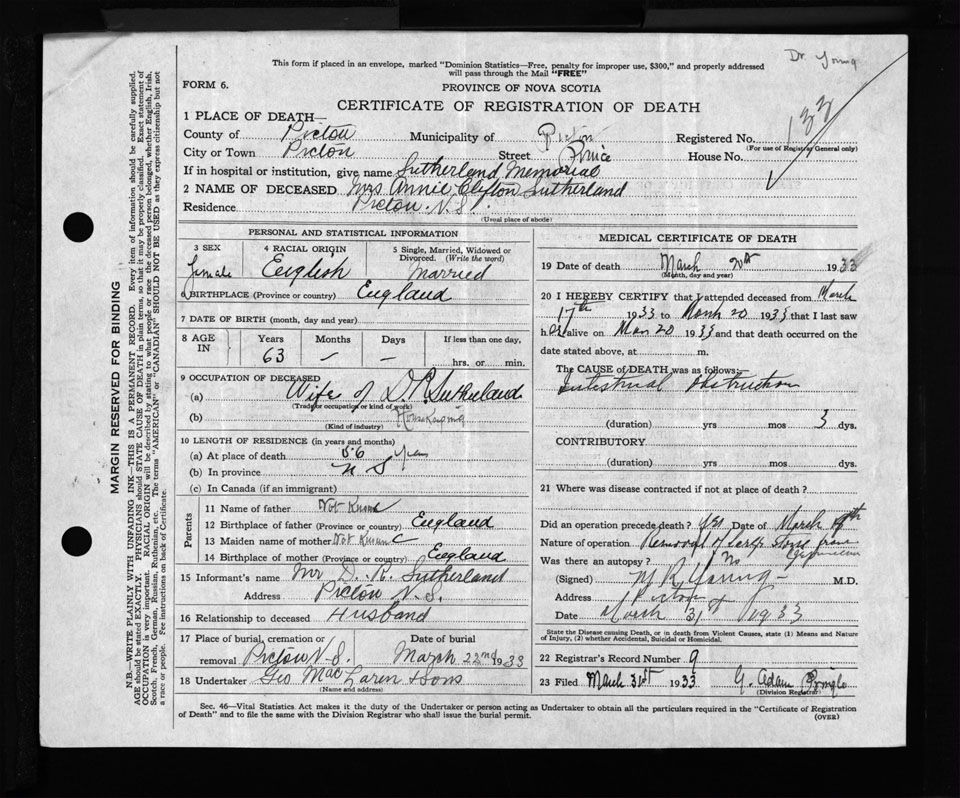 Dr Young
This form if placed in an envelope, marked "Dominion Statistics—Free, penalty for improper use, $300," and properly addressed
will pass through the Mail "FREE"
FORM 6.
PROVINCE OF NOVA SCOTIA
CERTIFICATE OF REGISTRATION OF DEATH
133
1 PLACE OF DEATH—
County of Pictou Municipality of Pictou Registered No.
(For use of Registrar General only)
City or Town Pictou Street Prince House No.
If in hospital or institution, give name Sutherland Memorial
2 NAME OF DECEASED Mrs Annie Clifton Sutherland
Residence Pictou N.S.
(Usual place of abode)
PERSONAL AND STATISTICAL INFORMATION
3 SEX 4 RACIAL ORIGIN 5 Single, Married, Widowed or
Divorced. (Write the word)
female English Married
6 BIRTHPLACE (Province or country) England
7 DATE OF BIRTH (month, day and year)
8 AGE IN Years Months Days If less than one day,
63 — — hrs. or min.
9 OCCUPATION OF DECEASED
(a) Wife of D. R. Sutherland
(Trade or occupation or kind of work)
(b) Housekeeping
(Kind of industry)
10 LENGTH OF RESIDENCE (in years and months)
(a) At place of death 56 years
(b) In province N S
(c) In Canada (if an immigrant)
Parents
11 Name of father Not Known
12 Birthplace of father (Province or country) England
13 Maiden name of mother Not Known
14 Birthplace of mother (Province or country) England
15 Informant's name Mr D. R. Sutherland
Address Pictou N.S.
16 Relationship to deceased Husband
17 Place of burial, cremation or Date of burial
removal Pictou N.S. March 22nd 1933
18 Undertaker Geo MacLaren & Sons
(Name and address)
MEDICAL CERTIFICATE OF DEATH
19 Date of death March 20th 1933
(Month, day and year)
20 I HEREBY CERTIFY that I attended deceased from March
17th 1933 to March 20 1933 that I last saw
her alive on Mar 20 1933 and that death occurred on the
date stated above, at m.
The CAUSE OF DEATH was as follows:
Intestinal Obstruction
(duration) yrs mos 3 dys.
CONTRIBUTORY
(duration) yrs mos dys.
21 Where was disease contracted if not at place of death?
Did an operation precede death? yes Date of March 19th
Nature of operation Removal of large stone from
Was there an autopsy? No
(Signed) M R Young M.D.
Address Pictou
Date March 31st 1933
State the Disease causing Death, or in death from Violent Causes, state (1) Means and Nature
of Injury, (2) whether Accidental, Suicidal or Homicidal.
22 Registrar's Record Number 9
23 Filed March 31st 1933 G. Adam Pringle
(Division Registrar)
Sec. 46—Vital Statistics Act makes it the duty of the Undertaker or person acting as Undertaker to obtain all the particulars required in the "Certificate of Registration
of Death" and to file the same with the Division Registrar who shall issue the burial permit.
(OVER)
MARGIN RESERVED FOR BINDING
N.B.—WRITE PLAINLY WITH UNFADING INK—THIS IS A PERMANENT RECORD. Every item of information should be carefully supplied.
AGE should be stated EXACTLY. PHYSICIANS should STATE CAUSE OF DEATH in plain terms, so that it may be properly classified. Exact statement of
OCCUPATION is very important. RACIAL ORIGIN will be described by stating to what people or race the deceased person belonged, whether English, Irish,
Scotch, French, German, Russian, Ruthenian, etc. The terms "AMERICAN" or "CANADIAN" SHOULD NOT BE USED as they express citizenship but not
a race or people. See instructions on back of Certificate.